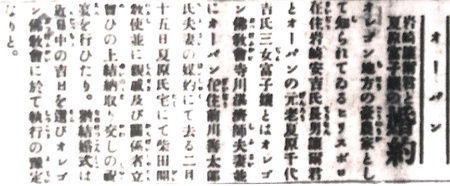 オーバン
岩崎 君
夏原富子孃の婚約
オレゴン地方の豪農家とし
て知られてゐるヒリスボロ
在住岩崎安吉氏長男 君
とオーバンの元老夏原千代
吉氏三女富子孃とはオレゴ
ン佛敎會寺川 師夫妻並
にオーバン在住前川 太郎
氏夫妻の媒妁にて去る二日
十五日夏原氏宅にて柴田開
敎使並に親戚及び關係者立
會ひの上結納取り交しの祝
宴を行ひたり。 結婚式は
近日中の吉日を選びオレゴ
ン佛敎會に於て執行の豫定
なりと。